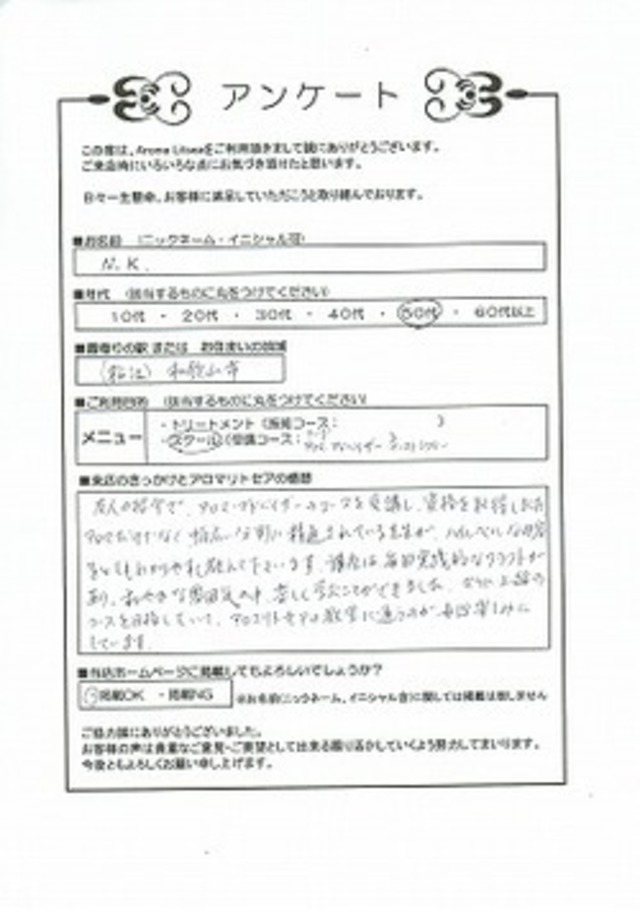 アンケート
この度は、Aroma Litseaをご利用頂きまして誠にありがとうございます。
ご来店時にいろいろな点にお気づき頂けたと思います。
日々一生懸命、お客様に満足していただこうと取り組んでおります。
■お名前 (ニックネーム・イニシャル可)
N.K.
■年代 (該当するものに丸をつけてください)
10代 ・ 20代 ・ 30代 ・ 40代 ・ 50代 ・ 60代以上
■最寄りの駅 または お住まいの地域
和歌山市
■ご利用目的 (該当するものに丸をつけてください)
メニュー
・トリートメント (施術コース: )
・スクール (受講コース:
■来店のきっかけとアロマリトセアの感想
友人の紹介で、アロマアドバイザーのコースを受講し、資格を取得しました
アロマだけでなく幅広い分野に精通されている先生が、ハイレベルな内容
をとてもわかりやすく教えて下さいます。講座は毎回実践的なクラフトが
あり、和やかな雰囲気の中、楽しく学ぶことができました。さらに上級の
コースを目指していて、アロマリトセアの教室に通うのが毎回楽しみに
しています。
■当店ホームページに掲載してもよろしいでしょうか?
掲載OK ・ 掲載NG ※お名前(ニックネーム、イニシャル含)に関しては掲載は致しません
ご協力誠にありがとうございました。
お客様の声は貴重なご意見・ご要望として出来る限り活かしていくよう努力してまいります。
今後ともよろしくお願い申し上げます。